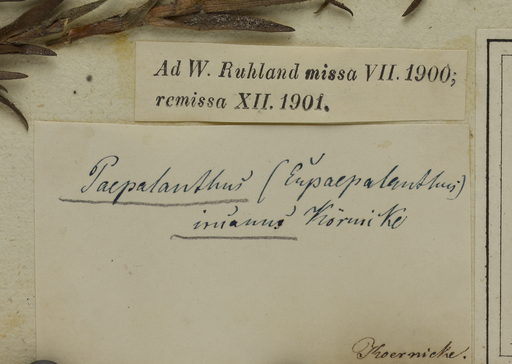 Ad W. Ruhland missa VII. 1900;
remissa XII. 1901.
Paepalanthus (Eupaepalanthus)
Körnicke
Koernicke.